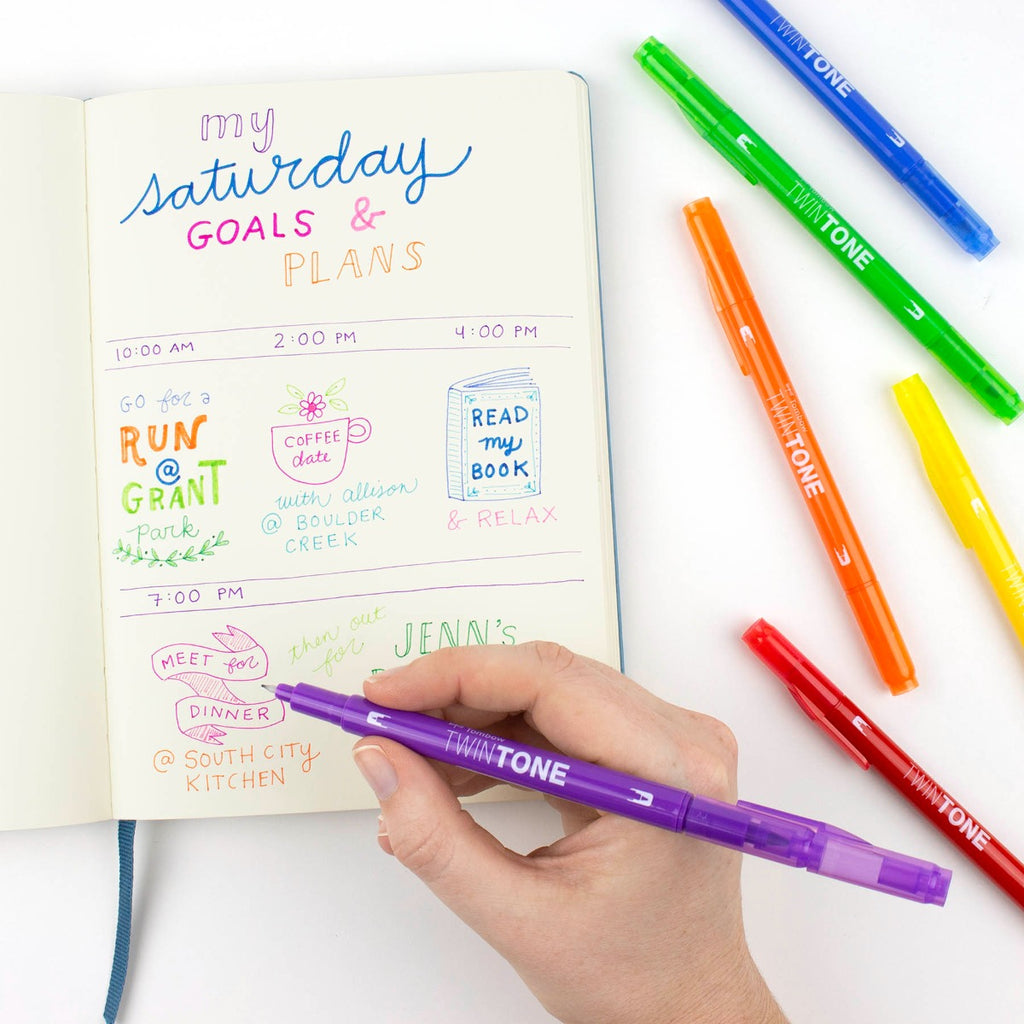 my
saturday
GOALS &
PLANS
10:00 AM
2:00 PM
4:00 PM
GO for a
RUN
@
GRANT
park
COFFEE
date
with allison
@ BOULDER
CREEK
READ
my
BOOK
& RELAX
7:00 PM
MEET for
DINNER
@ SOUTH CITY
KITCHEN
then out
for
JENN'S
Tombow
TWINTONE
TWINTONE
TWINTONE
Tombow
TWINTONE
TWINTONE